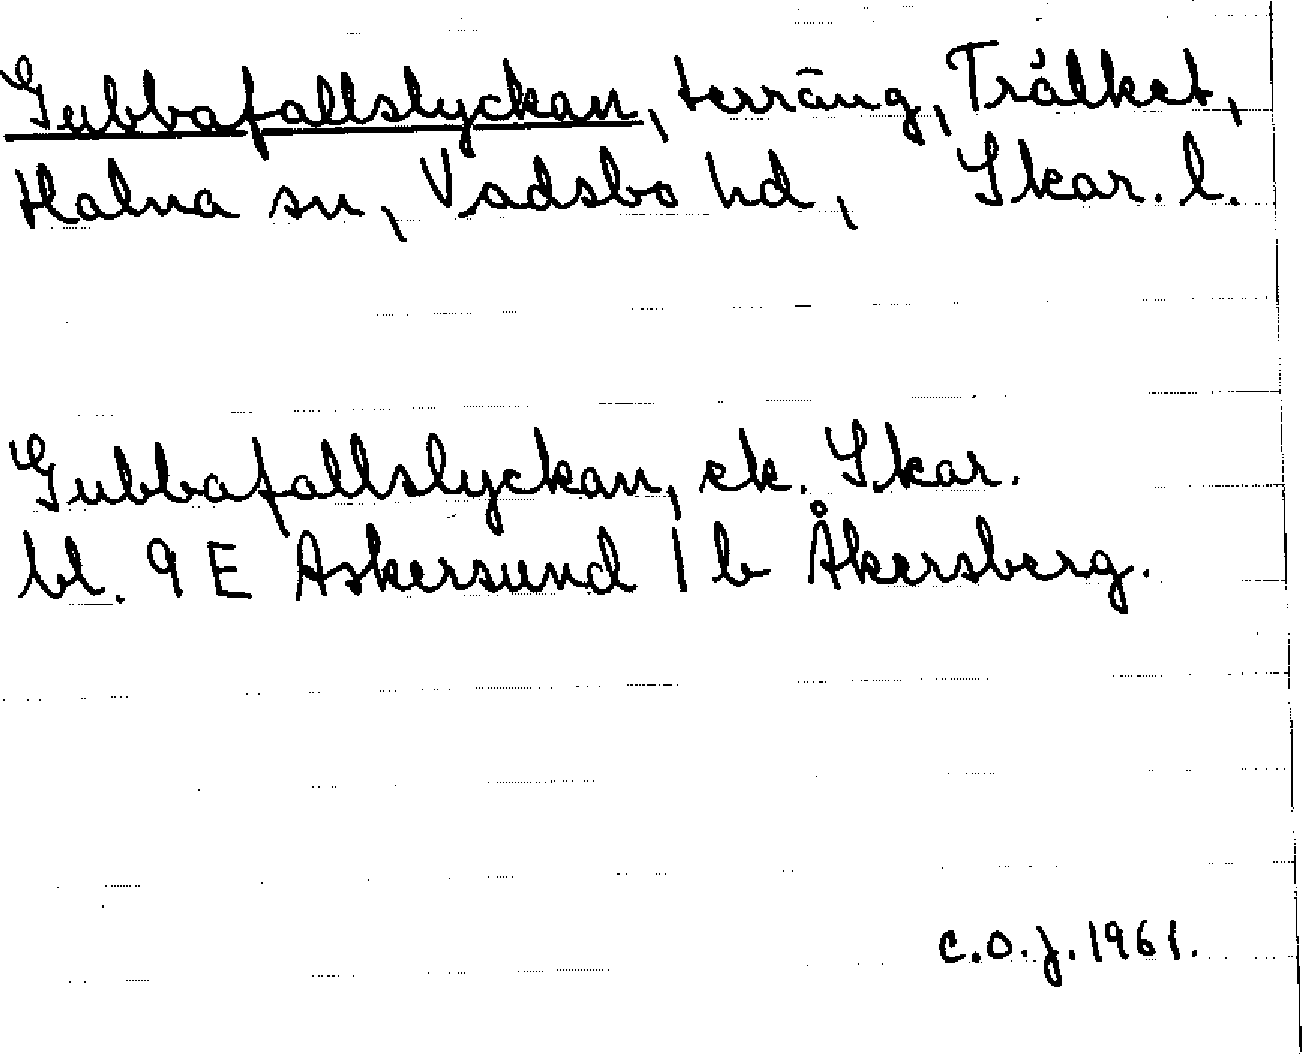 Gubbafallslyckan, terräng, Trålket,
Halna sn, Vadsbo hd, Skar. l.
Gubbafallslyckan, ek. Skar.
bl. 9 E Askersund 1 b Åkersberg.
C.O.J. 1961.